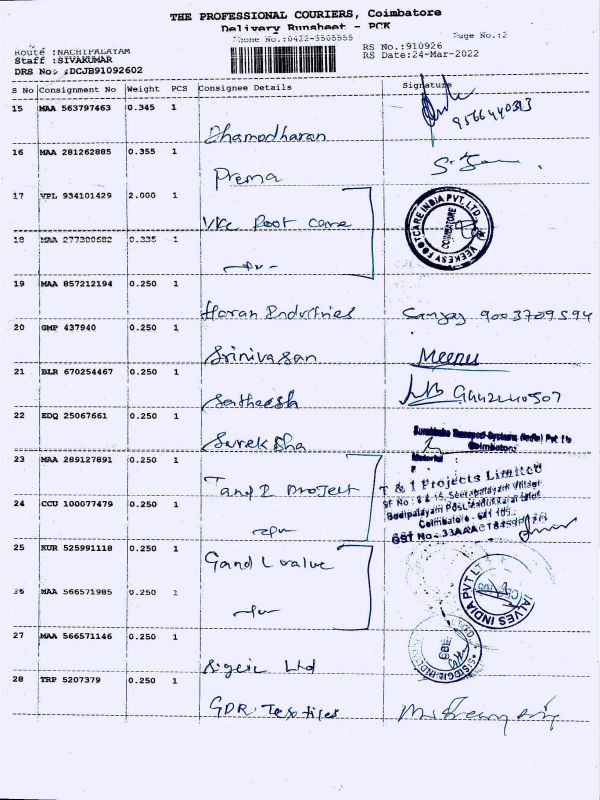 THE PROFESSIONAL COURIERS, Coimbatore
Delivery Runsheet - PCK
Phone No.:0422-3505555 Page No.:2
Route :NACHIPALAYAM RS No.:910926
Staff :SIVAKUMAR RS Date:24-Mar-2022
DRS No: :DCJB91092602
S No Consignment No Weight PCS Consignee Details Signature
15 MAA 563797463 0.345 1
Dhamodharan
16 MAA 281262885 0.355 1
Prema
17 VPL 934101429 2.000 1
VKC Foot care
VEEKESY FOOTCARE INDIA PVT. LTD
COIMBATORE
18 MAA 277300682 0.335 1
19 MAA 857212194 0.250 1
Haran Industries Sanjay 9003709594
20 GMP 437940 0.250 1
Srinivasan Meenu
21 BLR 670254467 0.250 1
Satheesh
22 EDQ 25067661 0.250 1
Sureksha
Coimbatore
23 MAA 289127891 0.250 1
T and I Project
T & I Projects Limited
24 CCU 100077479 0.250 1
Coimbatore - 641 105.
25 KUR 525991118 0.250 1
G and L valve
26 MAA 566571985 0.250
ALVES INDIA PVT LT
27 MAA 566571146 0.250 1
Ltd
28 TRP 5207379 0.250 1
GDR Textiles